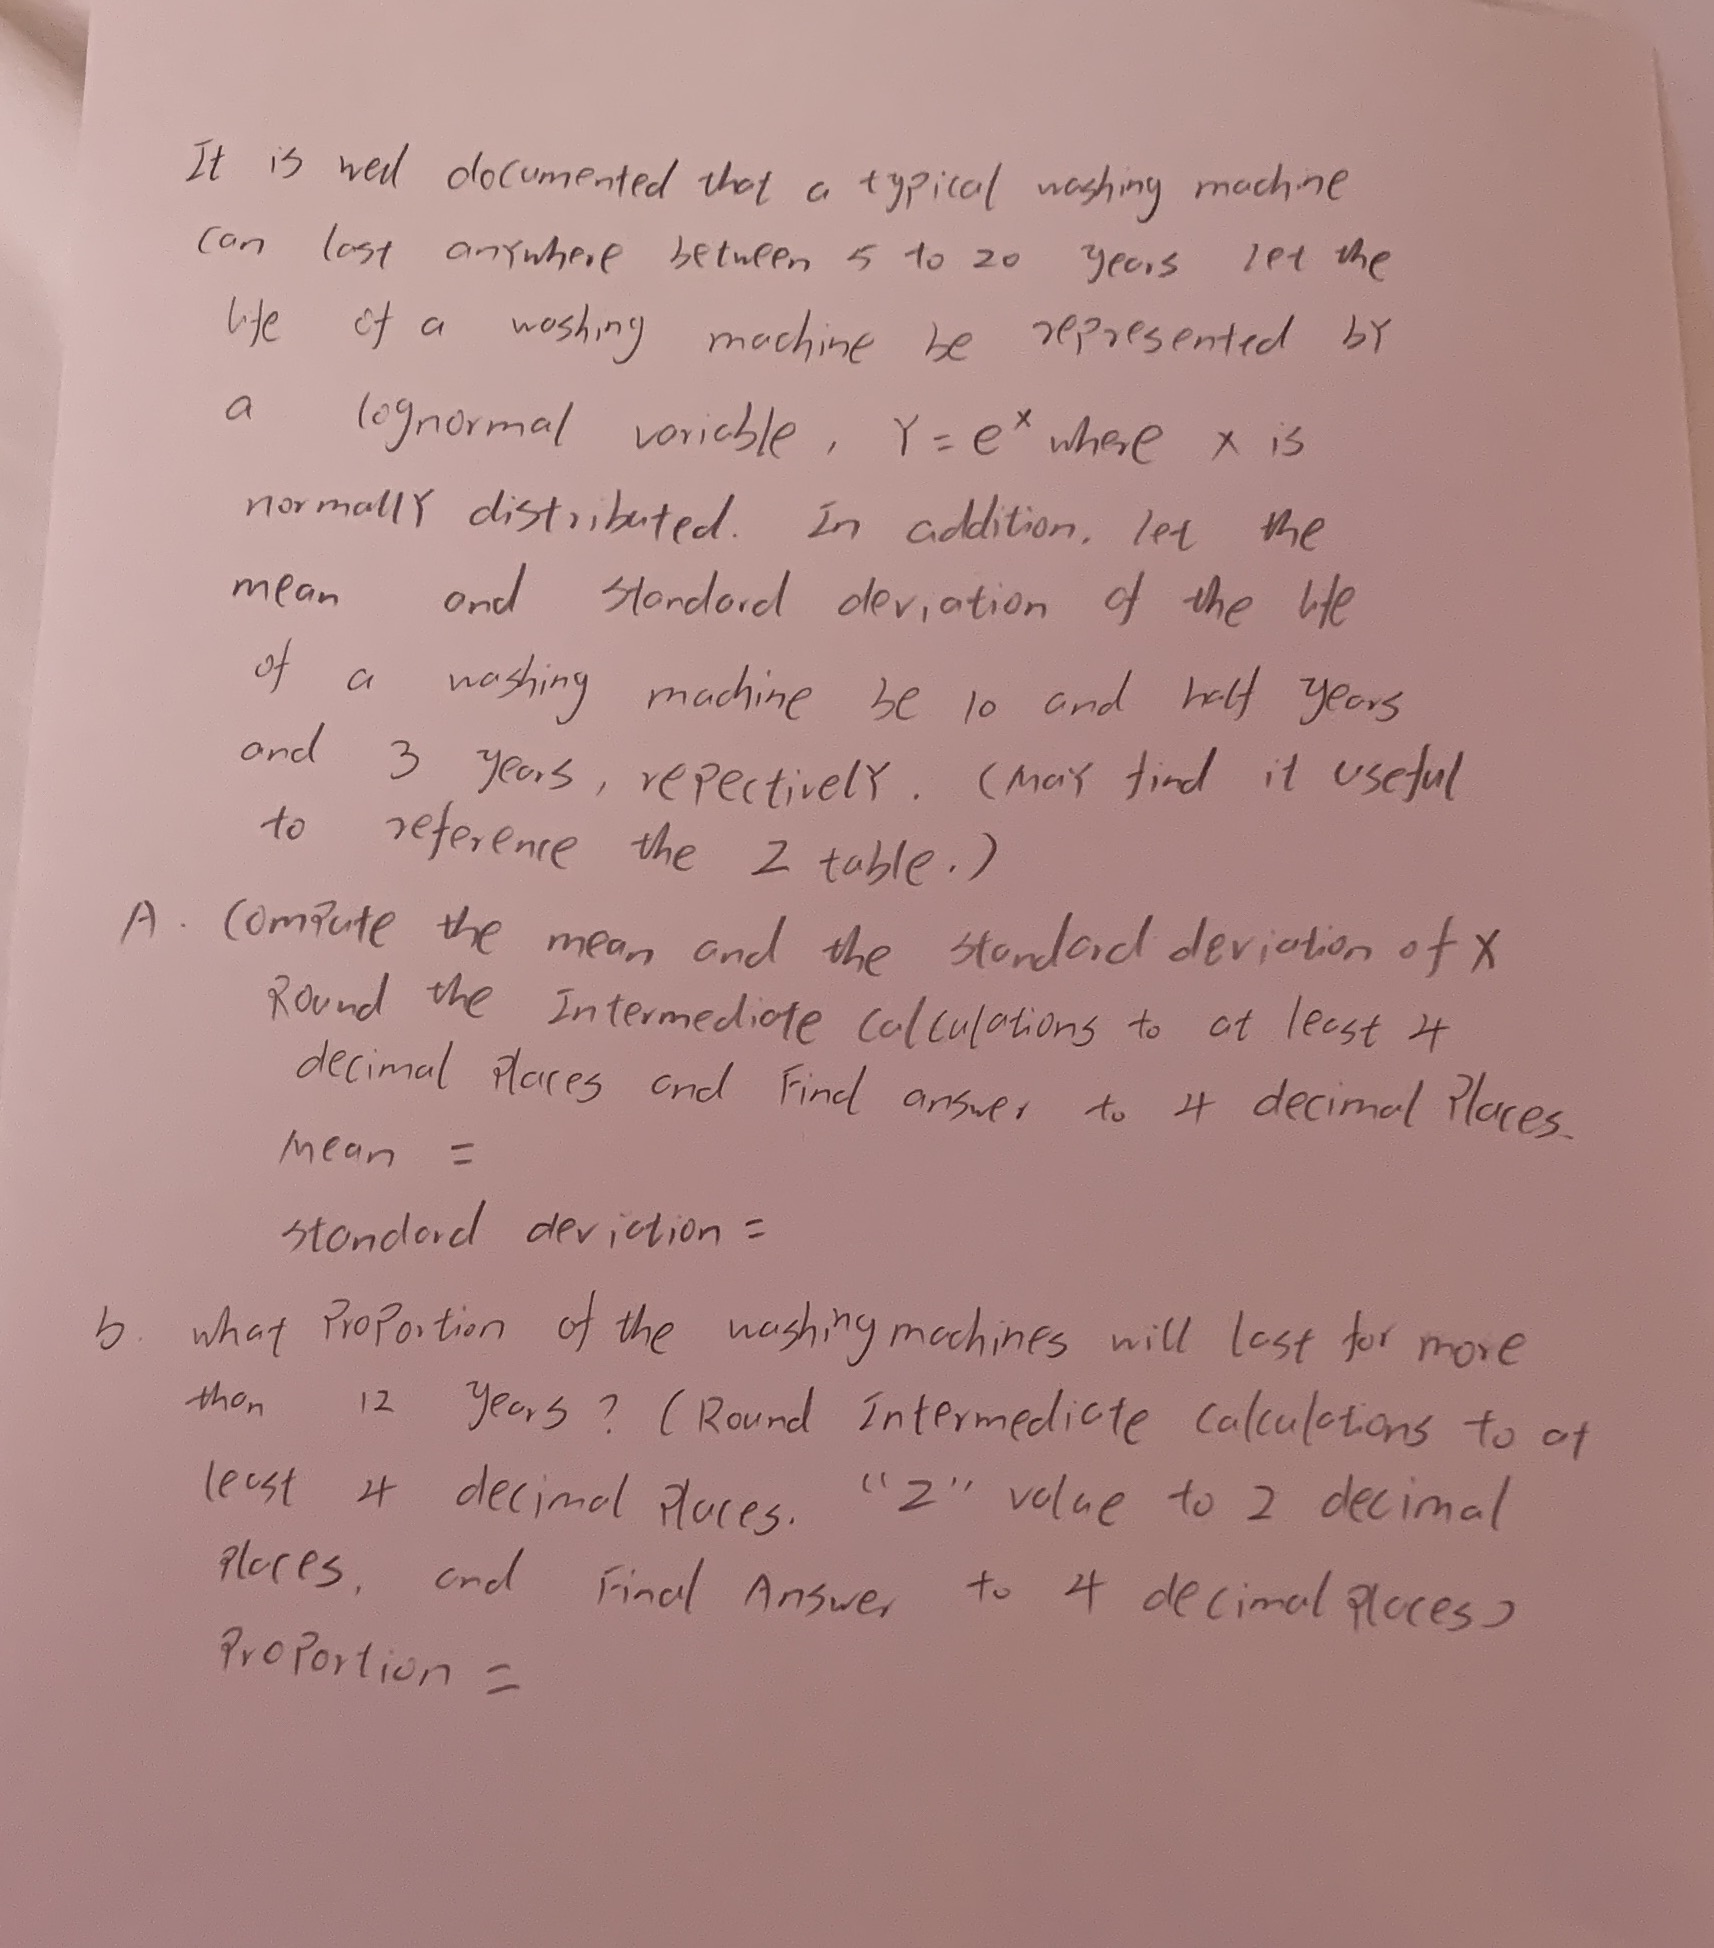 It is well documented that a typical washing machine
can last anywhere between 5 to 20 years let the
life of a washing machine be represented by
a lognormal variable, Y = e^x where x is
normally distributed. In addition, let the
mean and standard deviation of the life
of a washing machine be 10 and half years
and 3 years, repectively. (May find it useful
to reference the Z table.)
A. Compute the mean and the standard deviation of X
Round the Intermediate calculations to at least 4
decimal places and Find answer to 4 decimal places.
mean =
standard deviation =
b. what Proportion of the washing machines will last for more
than 12 years? (Round Intermediate calculations to at
least 4 decimal places. "Z" value to 2 decimal
places, and Final Answer to 4 decimal places)
Proportion =